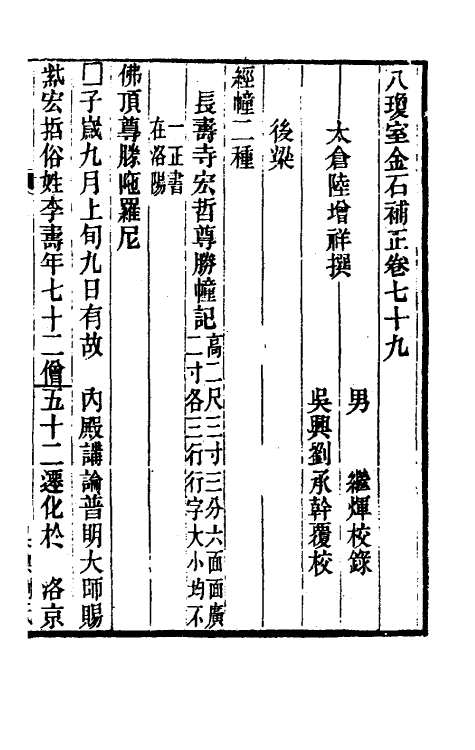 八瓊室金石補正卷七十九
男　繼煇校錄
太倉陸增祥撰
吳興劉承幹覆校
後梁
經幢二種
長壽寺宏哲尊勝幢記高二尺三寸三分六面面廣
二寸各三行行字大小均不
一正書
在洛陽
佛頂尊勝陁羅尼
□子歲九月上旬九日有故　內殿講論普明大師賜
紫宏哲俗姓李壽年七十二僧五十二遷化於　洛京